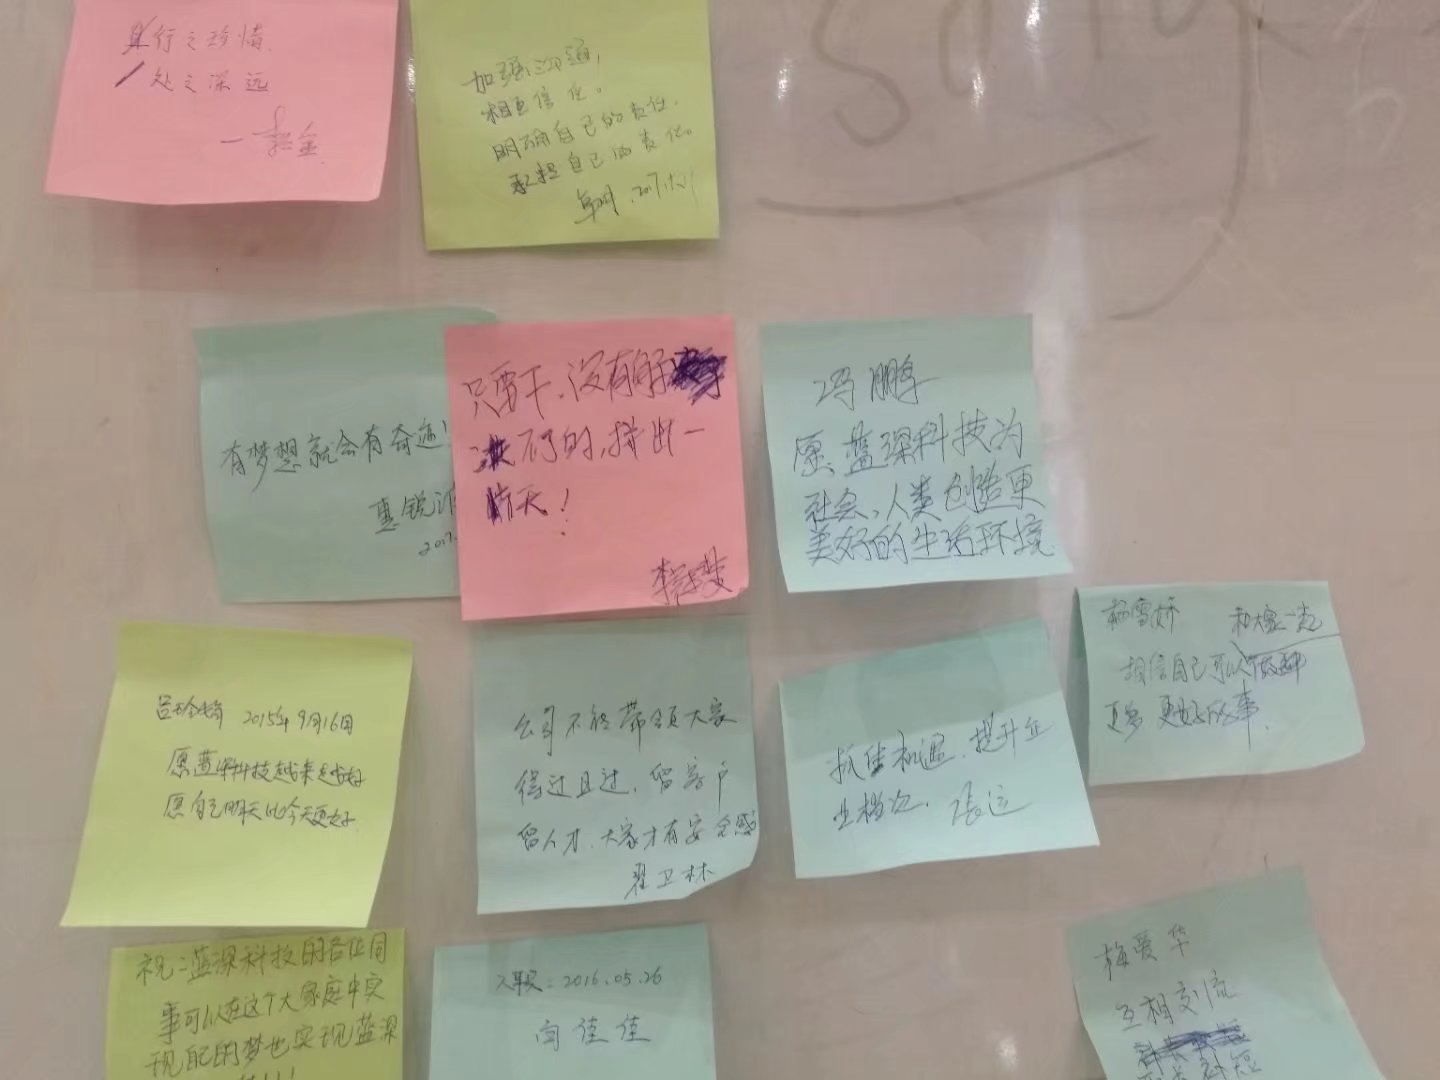 行之
处之深远
加强沟通，
相互信任。
明确自己的责任，
承担自己的责任。
有梦想就会有奇迹！
惠锐
2017.
只要干，没有
的，拼出一
天！
冯鹏
愿、蓝深科技为
社会、人类创造更
美好的生活环境
2015年9月16日
愿蓝深科技越来越好
愿自己明天比今天更好
公司不能带领大家
得过且过，留客户
留人才，大家才有安全感
翟卫林
抓住机遇，提升企
业档次， 张远
杨雪娇 和大家一起
相信自己可以做
更多 更好的事.
祝：蓝深科技的各位同
事可以在这个大家庭中实
现自己的梦也实现蓝深
入职：2016.05.26
闫佳佳
梅爱华
互相交流